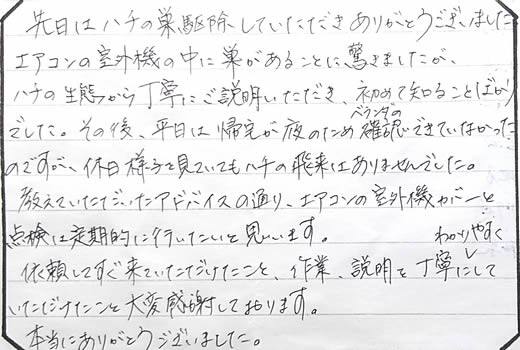 先日はハチの巣駆除していただきありがとうございました
エアコンの室外機の中に巣があることに驚きましたが、
ハチの生態から丁寧にご説明いただき、初めて知ることばかり
でした。その後、平日は帰宅が夜のためベランダの確認できていなかった
のですが、休日様子を見ていてもハチの飛来はありませんでした。
教えていただいたアドバイスの通り、エアコンの室外機カバーと
点検は定期的に行いたいと思います。
依頼してすぐ来ていただけたこと、作業、説明と丁寧にわかりやすくして
いただけたこと大変感謝しております。
本当にありがとうございました。